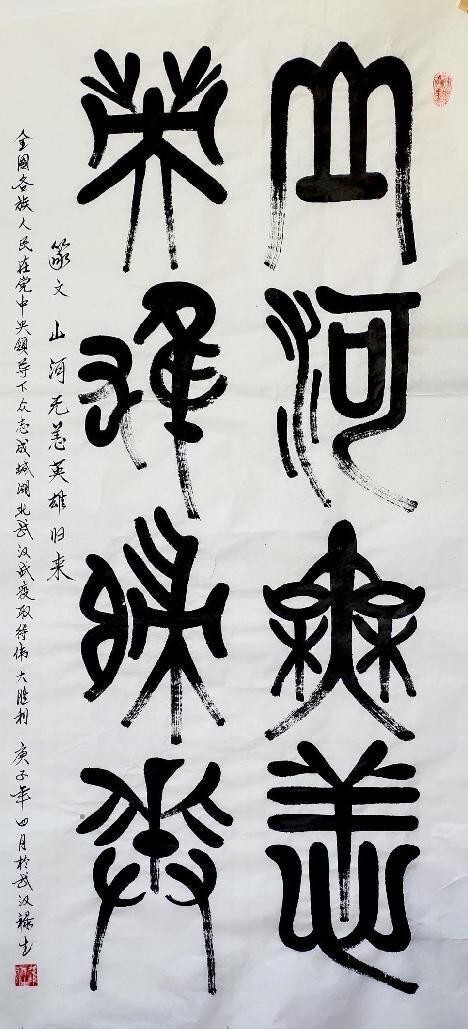 山河無恙
英雄歸來
篆文 山河无恙英雄归来
全國各族人民在党中央領导下众志成城湖北武汉战疫取得伟大胜利 庚子年四月於武汉